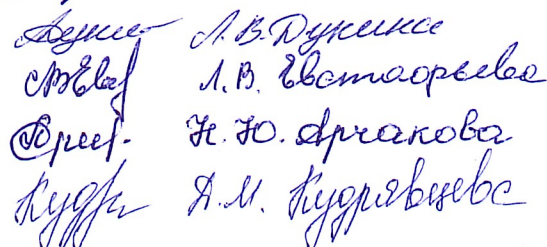 Л.В. Дунина
Л.В. Евстафьева
Н.Ю. Арчакова
Д.М. Кудрявцева